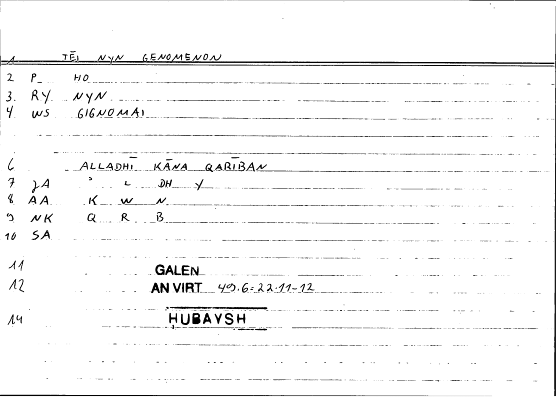 1 TĒI NYN GENOMENON
2 P_ HO
3. RY NYN
4 WS GIGNOMAI
6 ALLADHĪ KĀNA QARĪBAN
7 JA ʾ L DH Y
8 AA K W N
9 NK Q R B
10 SA
11 GALEN
12 AN VIRT 49.6=22.11-12
14 HUBAYSH